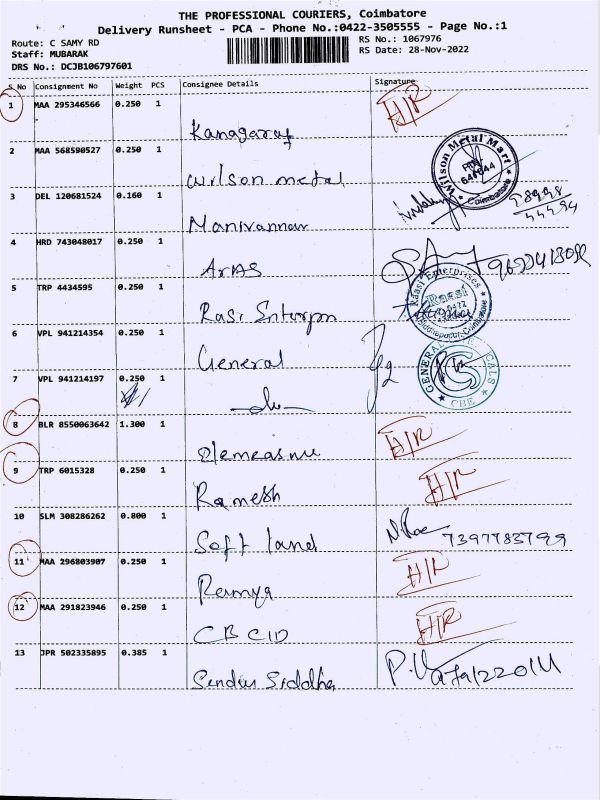 THE PROFESSIONAL COURIERS, Coimbatore
Delivery Runsheet - PCA - Phone No.:0422-3505555 - Page No.:1
Route: C SAMY RD
RS No.: 1067976
Staff: MUBARAK
RS Date: 28-Nov-2022
DRS No.: DCJB106797601
S No Consignment No Weight PCS Consignee Details Signature
1 MAA 295346566 0.250 1 H/R
Kanagaraj
2 MAA 568590527 0.250 1
Wilson metal
Wilson Metal Mart
Coimbatore
3 DEL 120681524 0.160 1
Manivannan
4 HRD 743048017 0.250 1
ArAS
5 TRP 4434595 0.250 1
Raasi Enterprises
Raasi
Rasi Enterpn
6 VPL 941214354 0.250 1
General
GENERAL
CBE
7 VPL 941214197 0.250 1
-do-
8 BLR 8550063642 1.300 1 H/R
9 TRP 6015328 0.250 1 H/R
Ramesh
10 SLM 308286262 0.800 1
Soft land 7397783799
11 MAA 296803907 0.250 1 H/R
Ramya
12 MAA 291823946 0.250 1 H/R
CBCID
13 JPR 502335895 0.385 1
Siddha